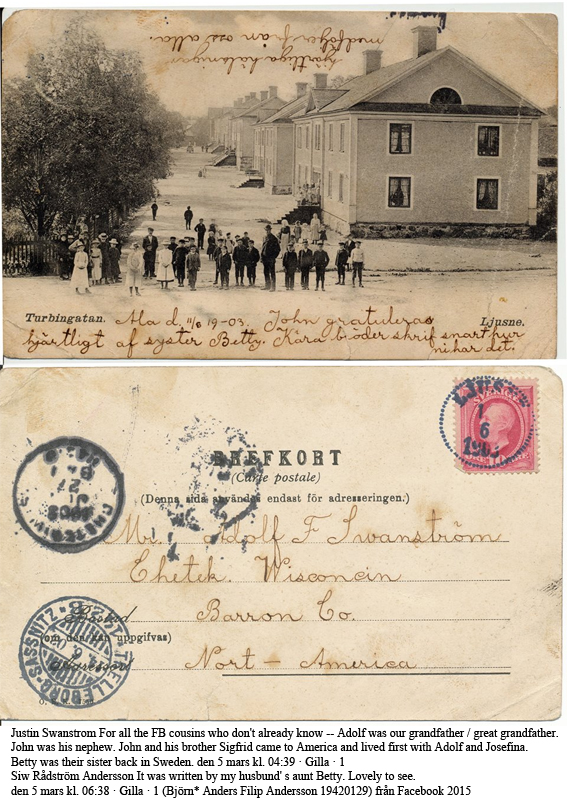 hjärtliga hälsningar
medföljer från oss alla.
Turbingatan. Ala d. 11/6 19-03. John gratuleras Ljusne.
hjärtligt af syster Betty. Kära broder skrif snart hur
ni har det.
LJUSNE
1
6
1903
SVERIGE
BREFKORT
(Carte postale)
(Denna sida användes endast för adresseringen.)
Mr. Adolf F Swanström
Chetek. Wisconcin
Bostad
Barron Co.
(om den kan uppgifvas)
Nort - America
TRELLEBORG-SASSNITZ
Justin Swanstrom For all the FB cousins who don't already know -- Adolf was our grandfather / great grandfather.
John was his nephew. John and his brother Sigfrid came to America and lived first with Adolf and Josefina.
Betty was their sister back in Sweden. den 5 mars kl. 04:39 · Gilla · 1
Siw Rådström Andersson It was written by my husbund' s aunt Betty. Lovely to see.
den 5 mars kl. 06:38 · Gilla · 1 (Björn* Anders Filip Andersson 19420129) från Facebook 2015